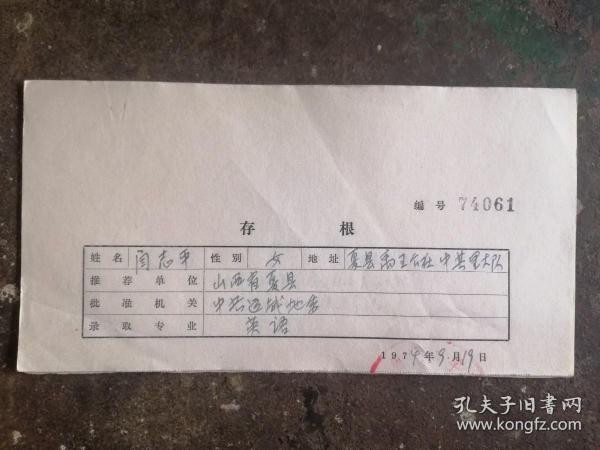 编号 74061
存根
姓名 闫志平 性别 女 地址 夏县禹王公社中其里大队
推荐单位 山西省夏县
批准机关 中共运城地委
录取专业 英语
1974年9月19日
孔夫子旧书网
www.kongfz.com